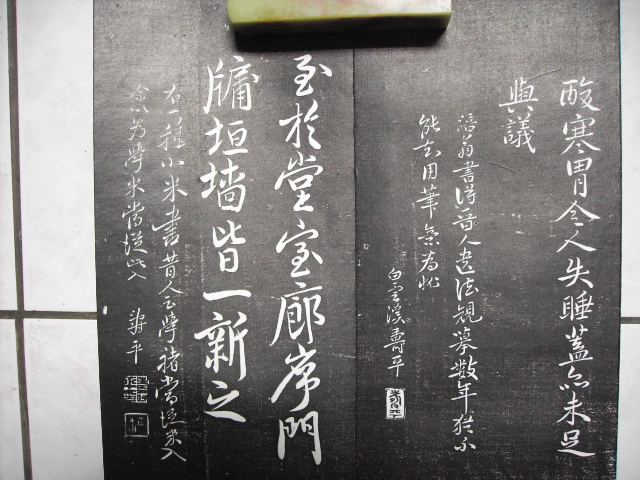 酸寒胃令人失睡蓋亦未足
與議
涪翁書得晉人遺法規摹數年猶不
能去用筆㝠為愧
白雲溪壽平
至於堂室廊序門
牖垣墻皆一新之
右一種小米書昔人云學褚當從米入
余以為學米當從此入
壽平